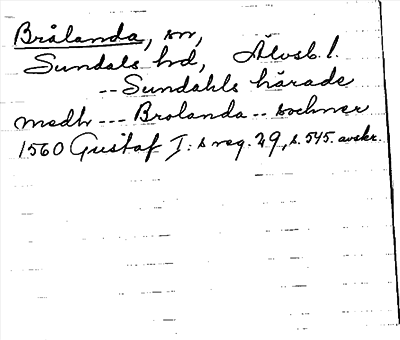 Brålanda, sn,
Sundals hd, Älvsb. l.
-- Sundahls härade
medh --- Brolanda -- sochner
1560 Gustaf I:s reg. 29, s. 545. avskr.